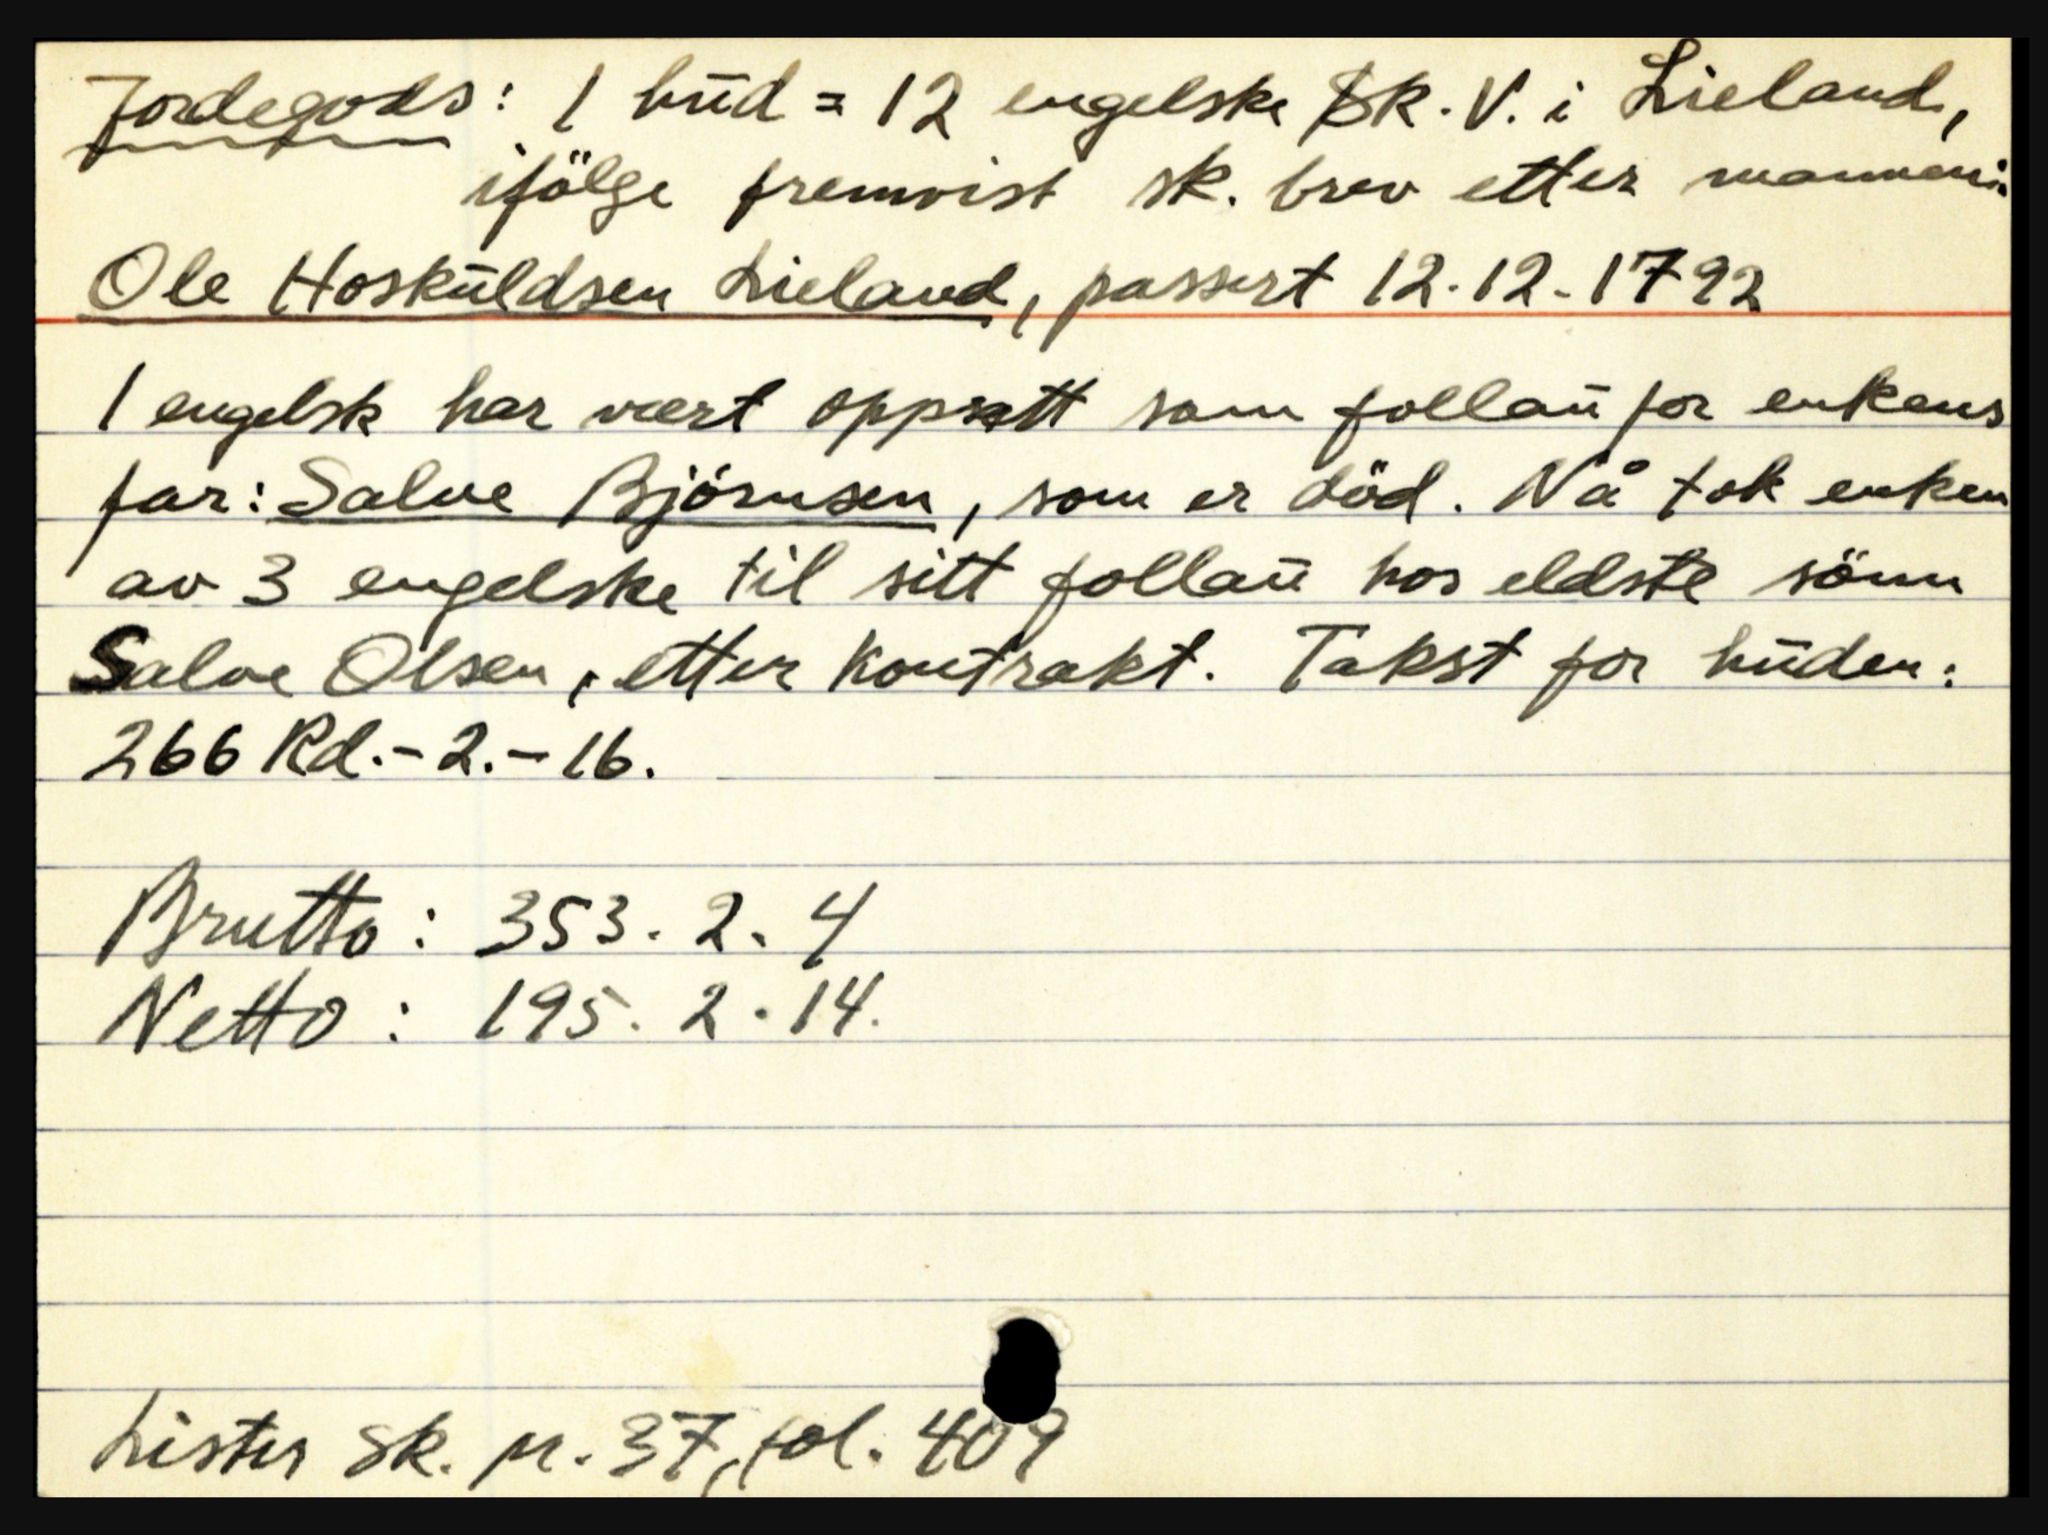 Jordegods: 1 hüd = 12 engelske sk. V. i Lieland,
ifölge fremvist sk. brev etter mannen:
Ole Hosküldsen Lieland, passert 12.12.1792
1 engelsk har vært oppsatt som follaü for enkens
far: Salve Björnsen, som er död. Nå tok enken
av 3 engelske til sitt follaü hos eldste sönn
Salve Olsen, etter kontrakt. Takst for hüden:
266 Rd.-2.-16.
Brutto: 353. 2. 4
Netto: 195. 2. 14.
Lister sk. pr. 37, fol. 409